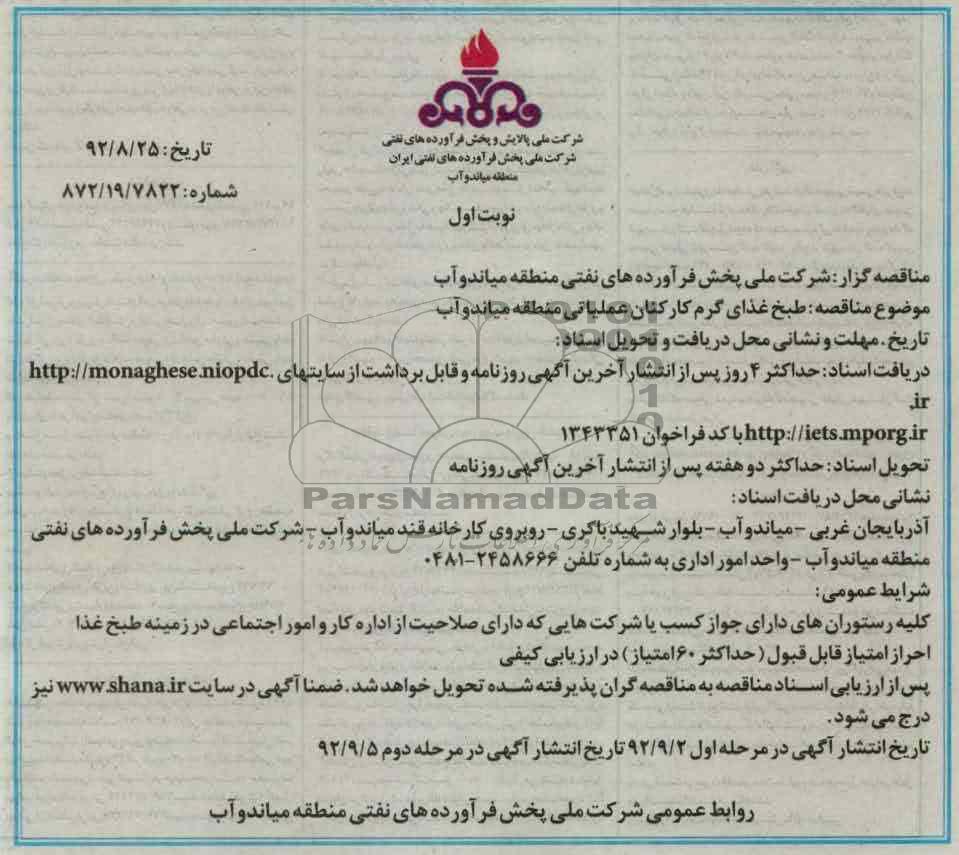 شرکت ملی پالایش و پخش فرآورده های نفتی
شرکت ملی پخش فرآورده های نفتی ایران
منطقه میاندوآب
تاریخ: ۹۲/۸/۲۵
شماره: ۸۷۲/۱۹/۷۸۲۲
نوبت اول
مناقصه گزار: شرکت ملی پخش فرآورده های نفتی منطقه میاندوآب
موضوع مناقصه: طبخ غذای گرم کارکنان عملیاتی منطقه میاندوآب
تاریخ، مهلت و نشانی محل دریافت و تحویل اسناد:
دریافت اسناد: حداکثر ۴ روز پس از انتشار آخرین آگهی روزنامه و قابل برداشت از سایتهای http://monaghese.niopdc.
ir.
http://iets.mporg.ir با کد فراخوان ۱۳۴۳۳۵۱
تحویل اسناد: حداکثر دو هفته پس از انتشار آخرین آگهی روزنامه
ParsNamadData
نشانی محل دریافت اسناد:
آذربایجان غربی - میاندوآب - بلوار شهید باکری - روبروی کارخانه قند میاندوآب - شرکت ملی پخش فرآورده های نفتی
منطقه میاندوآب - واحد امور اداری به شماره تلفن ۲۴۵۸۶۶۶-۰۴۸۱
شرایط عمومی:
کلیه رستوران های دارای جواز کسب یا شرکت هایی که دارای صلاحیت از اداره کار و امور اجتماعی در زمینه طبخ غذا
احراز امتیاز قابل قبول (حداکثر ۶۰ امتیاز) در ارزیابی کیفی
پس از ارزیابی اسناد مناقصه به مناقصه گران پذیرفته شده تحویل خواهد شد. ضمنا آگهی در سایت www.shana.ir نیز
درج می شود.
تاریخ انتشار آگهی در مرحله اول ۹۲/۹/۲ تاریخ انتشار آگهی در مرحله دوم ۹۲/۹/۵
روابط عمومی شرکت ملی پخش فرآورده های نفتی منطقه میاندوآب